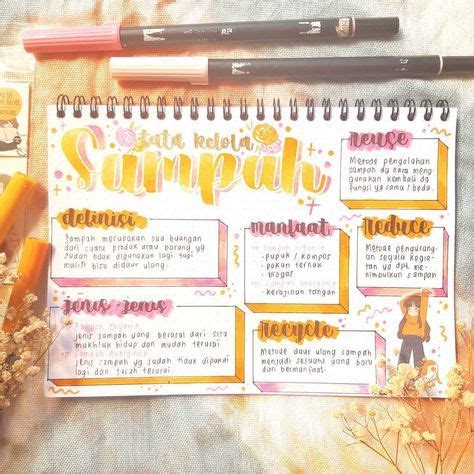 tata kelola
Sampah
definisi
Sampah merupakan sisa buangan
dari suatu produk atau barang yg
sudah tidak digunakan lagi tapi
masih bisa didaur ulang.
jenis-jenis
Sampah Organik
jenis sampah yang berasal dari sisa
makhluk hidup dan mudah terurai
Sampah Anorganik
jenis sampah yg sudah tidak dipakai
lagi dan sulit terurai.
manfaat
sampah organik
- pupuk / kompos
- pakan ternak
- biogas
sampah anorganik
- kerajinan tangan
reuse
Metode pengolahan
sampah dg cara meng-
gunakan kembali dg
fungsi yg sama / beda.
reduce
Metode pengurang-
an segala kegia-
tan yg dpt me-
nimbulkan sampah
recycle
Metode daur ulang sampah
menjadi sesuatu yang baru
dan bermanfaat.